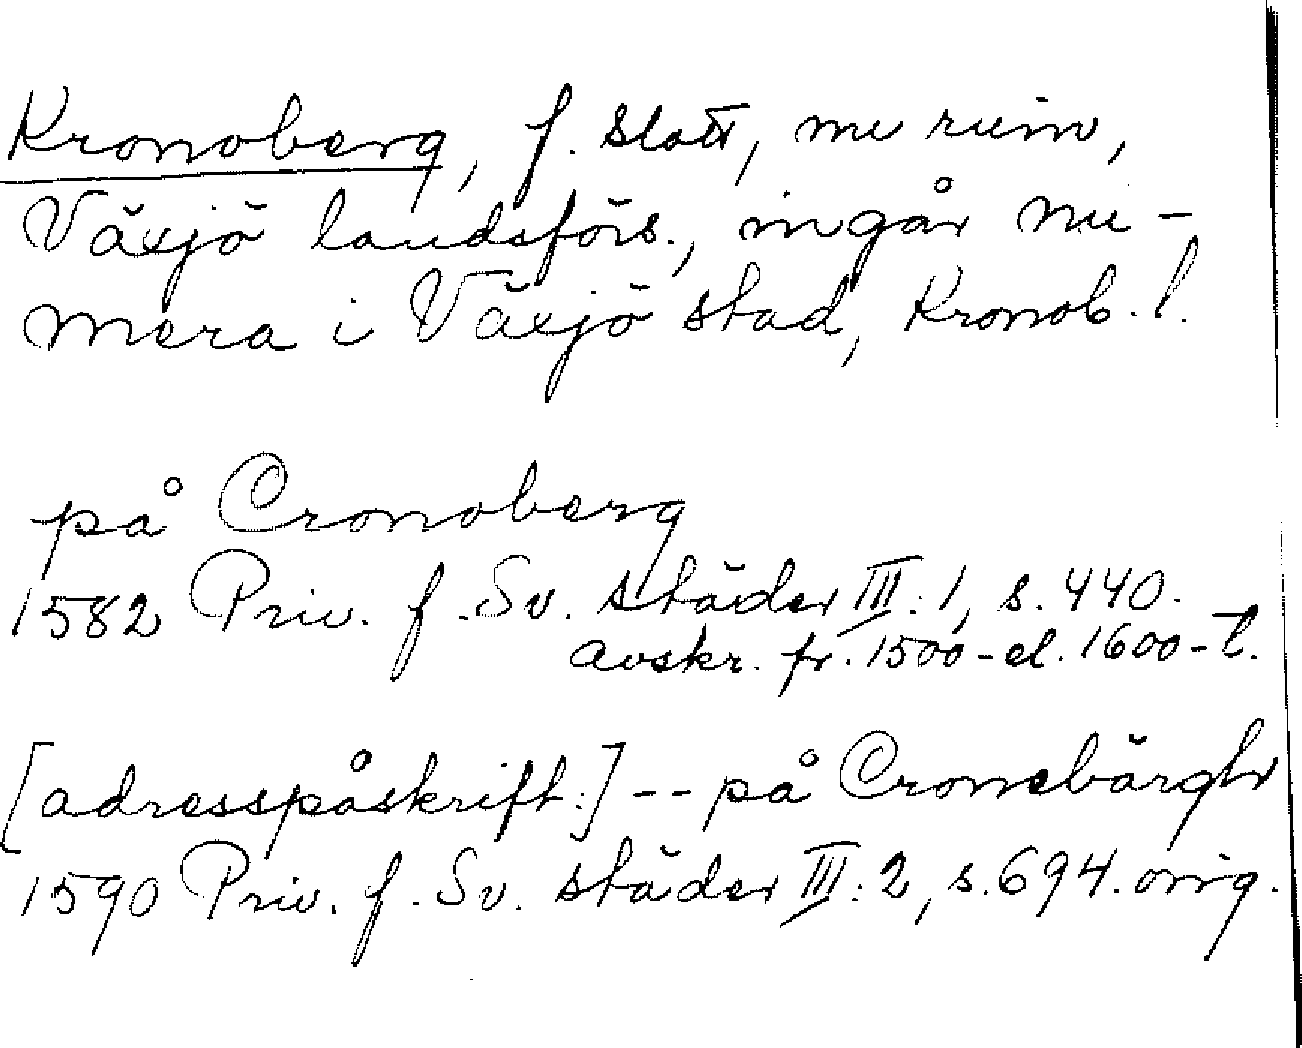 Kronoberg, f. slott, nu ruin,
Växjö landsförs., ingår nu-
mera i Växjö stad, Kronob. l.
på Cronoberg
1582 Priv. f. Sv. städer III:1, s. 440.
avskr. fr. 1500- el. 1600-t.
[adresspåskrift:] -- på Cronebärgh
1590 Priv. f. Sv. städer III:2, s. 694. orig.